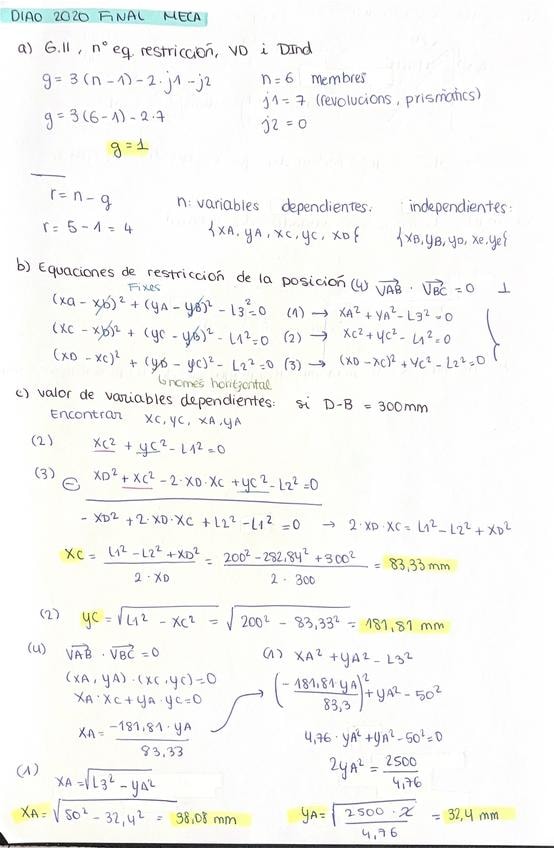 DIAO 2020 FINAL MECA
a) G.ll, nº eq. restricción, VD i DInd
g = 3(n-1) - 2·j1 - j2
n = 6 membres
j1 = 7 (revolucions, prismàtics)
g = 3(6-1) - 2·7
j2 = 0
g = 1
r = n - g
n: variables dependientes. independientes:
r = 5 - 1 = 4
{xA, yA, xC, yC, xD{ {xB, yB, yD, xe, ye{
b) Equaciones de restricción de la posición (4) VAB · VBC = 0 ⊥
Fixes
(xa - xb)² + (yA - yB)² - L3² = 0 (1) → xA² + yA² - L3² = 0
(xC - xb)² + (yC - yb)² - L1² = 0 (2) → xC² + yC² - L1² = 0
(xD - xC)² + (yD - yC)² - L2² = 0 (3) → (xD - xC)² + yC² - L2² = 0
només horitzontal
c) valor de variables dependientes: si D-B = 300mm
Encontrar xC, yC, xA, yA
(2) xC² + yC² - L1² = 0
(3) ⊖ xD² + xC² - 2·xD·xC + yC² - L2² = 0
- xD² + 2·xD·xC + L2² - L1² = 0 → 2·xD·xC = L1² - L2² + xD²
xC = (L1² - L2² + xD²) / (2·xD) = (200² - 282,84² + 300²) / (2·300) = 83,33 mm
(2) yC = √(L1² - xC²) = √(200² - 83,33²) = 181,81 mm
(4) VAB · VBC = 0
(1) xA² + yA² - L3²
(xA, yA)·(xC, yC) = 0
xA·xC + yA·yC = 0
(-181,81·yA / 83,3)² + yA² - 50²
xA = -181,81·yA / 83,33
4,76·yA² + yA² - 50² = 0
2yA² = 2500 / 4,76
(1)
xA = √(L3² - yA²)
xA = √(50² - 32,4²) = 98,08 mm
yA = √(2500·2 / 4,76) = 32,4 mm